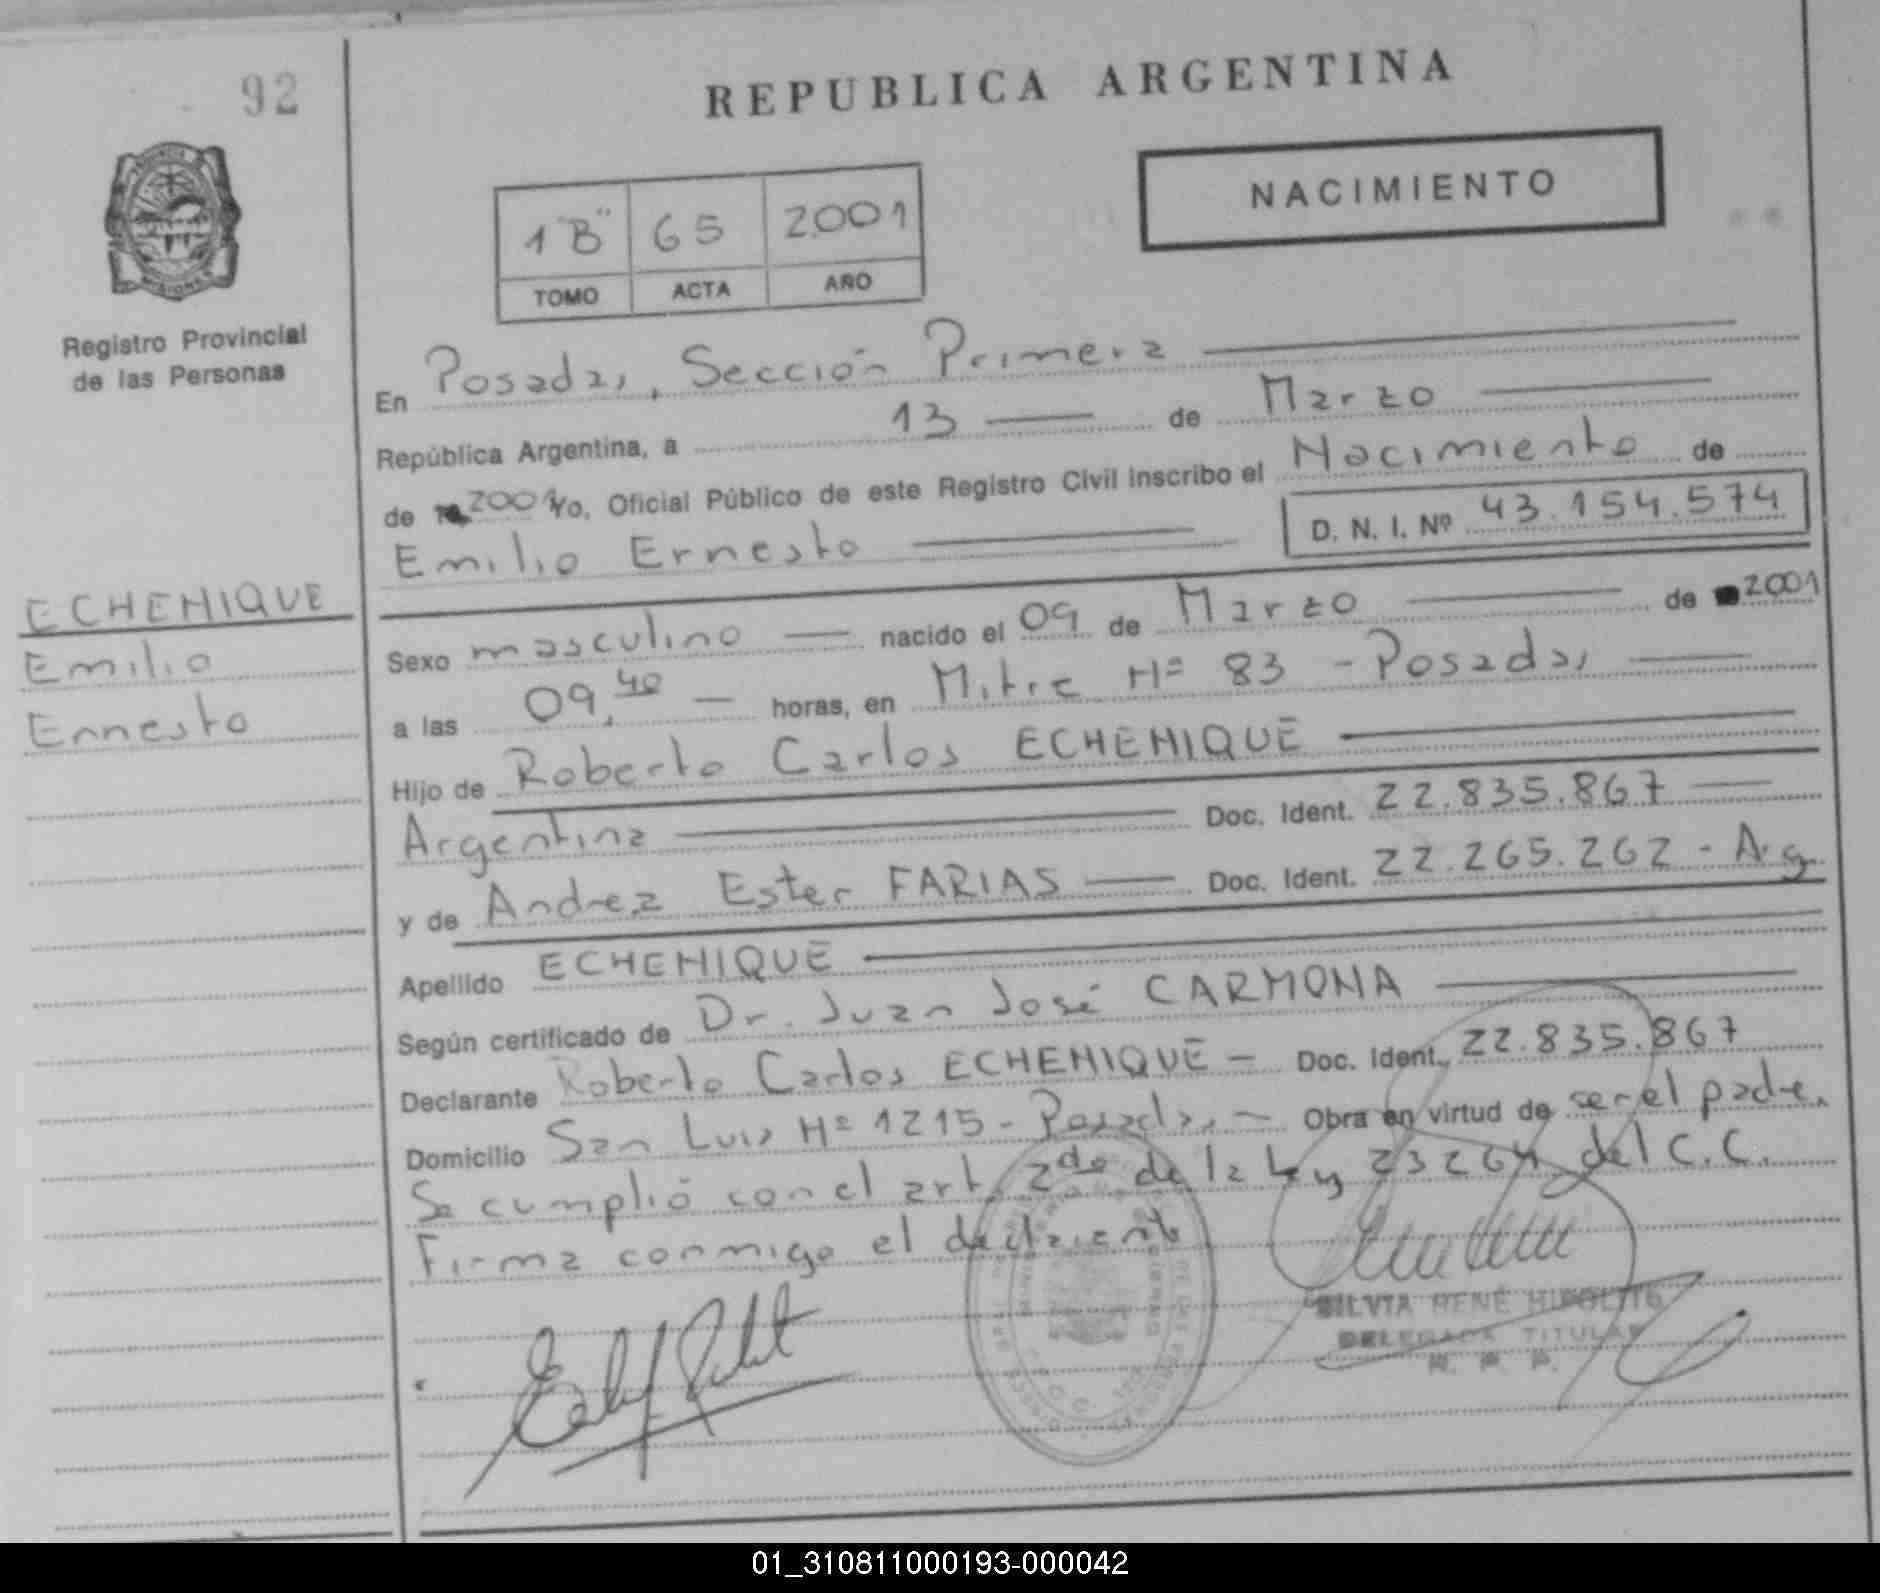 92
REPUBLICA ARGENTINA
NACIMIENTO
1 "B" 65 2001
TOMO ACTA AÑO
Registro Provincial
de las Personas
En Posadas, Sección Primera
República Argentina, a 13 de Marzo
de 2001 Yo, Oficial Público de este Registro Civil inscribo el Nacimiento de
Emilio Ernesto D. N. I. Nº 43.154.574
ECHENIQUE
Emilio
Ernesto
Sexo masculino nacido el 09 de Marzo de 2001
a las 09,40 horas, en Mitre Nº 83 - Posadas
Hijo de Roberto Carlos ECHENIQUE
Argentina Doc. Ident. 22.835.867
y de Andrea Ester FARIAS Doc. Ident. 22.265.262 - Arg.
Apellido ECHENIQUE
Según certificado de Dr. Juan José CARMONA
Declarante Roberto Carlos ECHENIQUE - Doc. Ident. 22.835.867
Domicilio San Luis Nº 1215 - Posadas - Obra en virtud de ser el padre.
Se cumplió con el art. 2do de la Ley 23264 del C.C.
Firma conmigo el declarante
SILVIA RENÉ HIPOLITO
DELEGADA TITULAR
R. P. P.
01_310811000193-000042